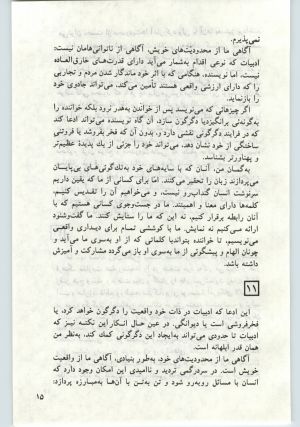 نمی‌پذیرم.
آگاهی ما از محدودیّت‌های خویش، آگاهی از ناتوانی‌هامان نیست:
ادبیات که نوعی اقدام به‌شمار می‌آید دارای قدرت‌های خارق‌العاده
نیست، اما نویسنده، هنگامی که با اثر خود ماندگار شدن مردم و تجاربی
را که دارای ارزشی واقعی هستند تأمین می‌کند، می‌تواند جادوی خود
را بازنماید.
اگر چیزهائی که می‌نویسد پس از خواندن به‌هدر نرود بلکه خواننده را
به‌گونه‌ئی برانگیزد یا دگرگون سازد، آن گاه نویسنده می‌تواند ادعا کند
که در فرایند دگرگونی نقشی دارد، و بدون آن که فخر بفروشد یا فروتنی
ساختگی از خود نشان دهد، می‌تواند خود را جزئی از یك پدیدهٔ عظیم‌تر
و پهناورتر بشناسد.
به‌گمان من، آنان که با سایه‌های خود به‌تك‌گوئی‌های بی‌پایسان
می‌پردازند زبان را تحقیر می‌کنند. اما برای کسانی از ما که یقین داریم
سرنوشت انسان گندابرو نیست، و می‌خواهیم آن را تقدیس کنیم،
کلمه‌ها دارای معنا و اهمیتند. ما در جست‌وجوی کسانی هستیم که با
آنان رابطه برقرار کنیم، نه این که ما را ستایش کنند. ما گفت‌وشنود
ارائه می‌کنیم نه نمایش. ما با کوششی تمام برای دیداری واقعی
می‌نویسیم، تا خواننده بتواند با کلماتی که از او به‌سوی ما می‌آید و
چونان الهام و پیشگوئی از ما به‌سوی او باز می‌گردد مشارکت و آمیزش
داشته باشد.
۱۱
این ادعا که ادبیات در ذات خود واقعیت را دگرگون خواهد کرد، یا
فخرفروشی است یا دیوانگی. در عین حال انکار این نکته نیز که
ادبیات تا حدودی می‌تواند به‌ایجاد این دگرگونی کمك کند، به‌نظر من
همان قدر ابلهانه است.
آگاهی ما از محدودیت‌های خود، به‌طور بنیادی، آگاهی ما از واقعیت
خویش است. در سردرگمی تردید و ناامیدی این امکان وجود دارد که
انسان با مسائل روبه‌رو شود و تن به‌تن با آن‌ها به‌مبارزه پردازد:
۱۵